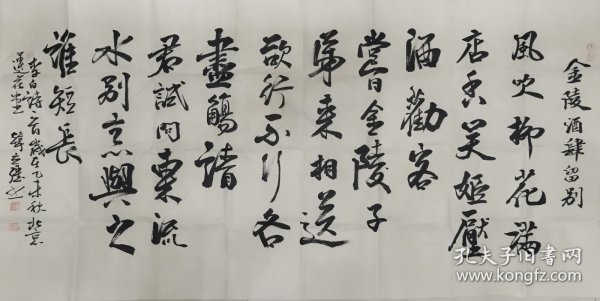 金陵酒肆留別
風吹柳花滿
店香吳姬壓
酒勸客
嘗金陵子
弟来相送
欲行不行各
盡觴請
君試問東流
水別意與之
誰短長
李白詩一首歲在乙未秋北京
蓮花
孔夫子旧书网
www.kongfz.com